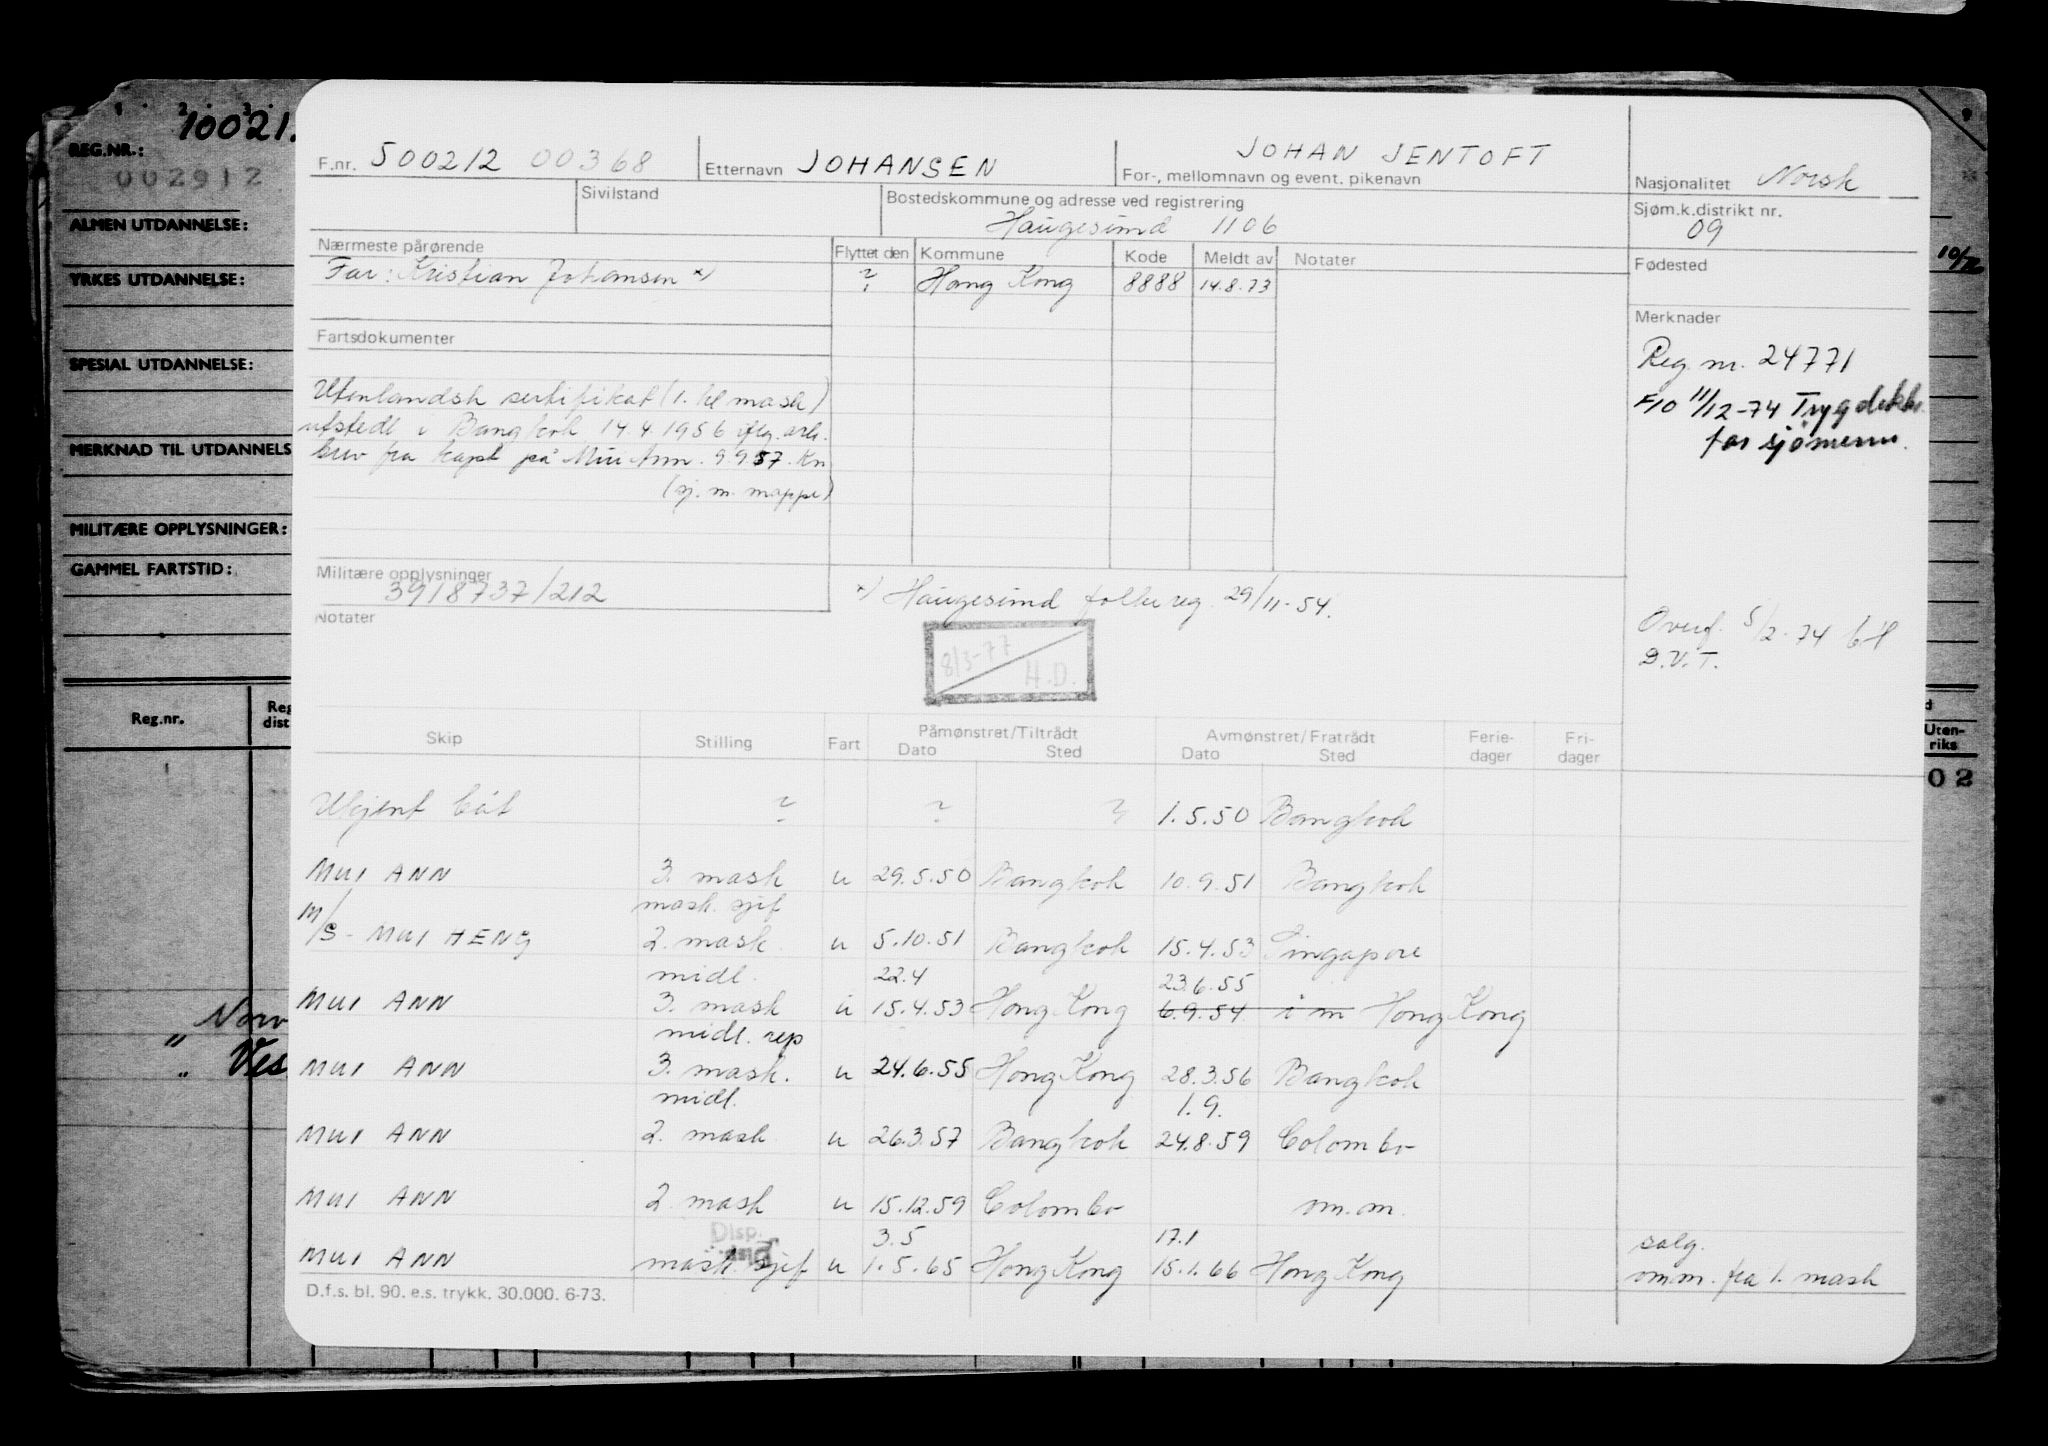 10021
REG.NR.:
002912
ALMEN UTDANNELSE:
YRKES UTDANNELSE:
SPESIAL UTDANNELSE:
MERKNAD TIL UTDANNELS
MILITÆRE OPPLYSNINGER:
GAMMEL FARTSTID:
Reg.nr.
Reg
dist
Norv
" Ves
F.nr. 500212 00368 Etternavn JOHANSEN JOHAN JENTOFT
For-, mellomnavn og event. pikenavn
Nasjonalitet Norsk
Sivilstand
Bostedskommune og adresse ved registrering
Haugesund 1106
Sjøm.k.distrikt nr.
09
Nærmeste pårørende
Far: Kristian Johansen x)
Flyttet den Kommune Kode Meldt av Notater
? Hong Kong 8888 14.8.73
Fødested
Merknader
Reg. nr. 24771
F10 11/12-74 Trygdekk.
for sjømenn.
Fartsdokumenter
Utenlandsk sertifikat (1. kl mask)
utstedt i Bangkok 14.4.1956 iflg. arb.
brev fra kapt på Mui Ann. 9.9.57. Kn
(sj. m. mappe)
Militære opplysninger
3918737/212
x) Haugesund folkereg. 29/11-54.
Notater
8/3-77
H.D.
Overf. 5/2-74
D.V.T.
Skip Stilling Fart Påmønstret/Tiltrådt Avmønstret/Fratrådt Ferie- Fri-
Dato Sted Dato Sted dager dager
Ukjent båt ? ? ? 1.5.50 Bangkok
MUI ANN 3. mask u 29.5.50 Bangkok 10.9.51 Bangkok
mask. sjef
M/S - MUI HENG 2. mask. u 5.10.51 Bangkok 15.4.53 Singapore
midl. 22.4 23.6.55
MUI ANN 3. mask u 15.4.53 Hong Kong 6.9.54 i m Hong Kong
midl. rep
MUI ANN 3. mask. u 24.6.55 Hong Kong 28.3.56 Bangkok
midl. 1.9.
MUI ANN 2. mask u 26.3.57 Bangkok 24.8.59 Colombo
MUI ANN 2. mask u 15.12.59 Colombo om.m.
Disp. 3.5 17.1
MUI ANN mask. sjef u 1.5.65 Hong Kong 15.1.66 Hong Kong
salg.
omm. fra 1. mask
D.f.s. bl. 90. e.s. trykk. 30.000. 6-73.
Uten-
riks
02